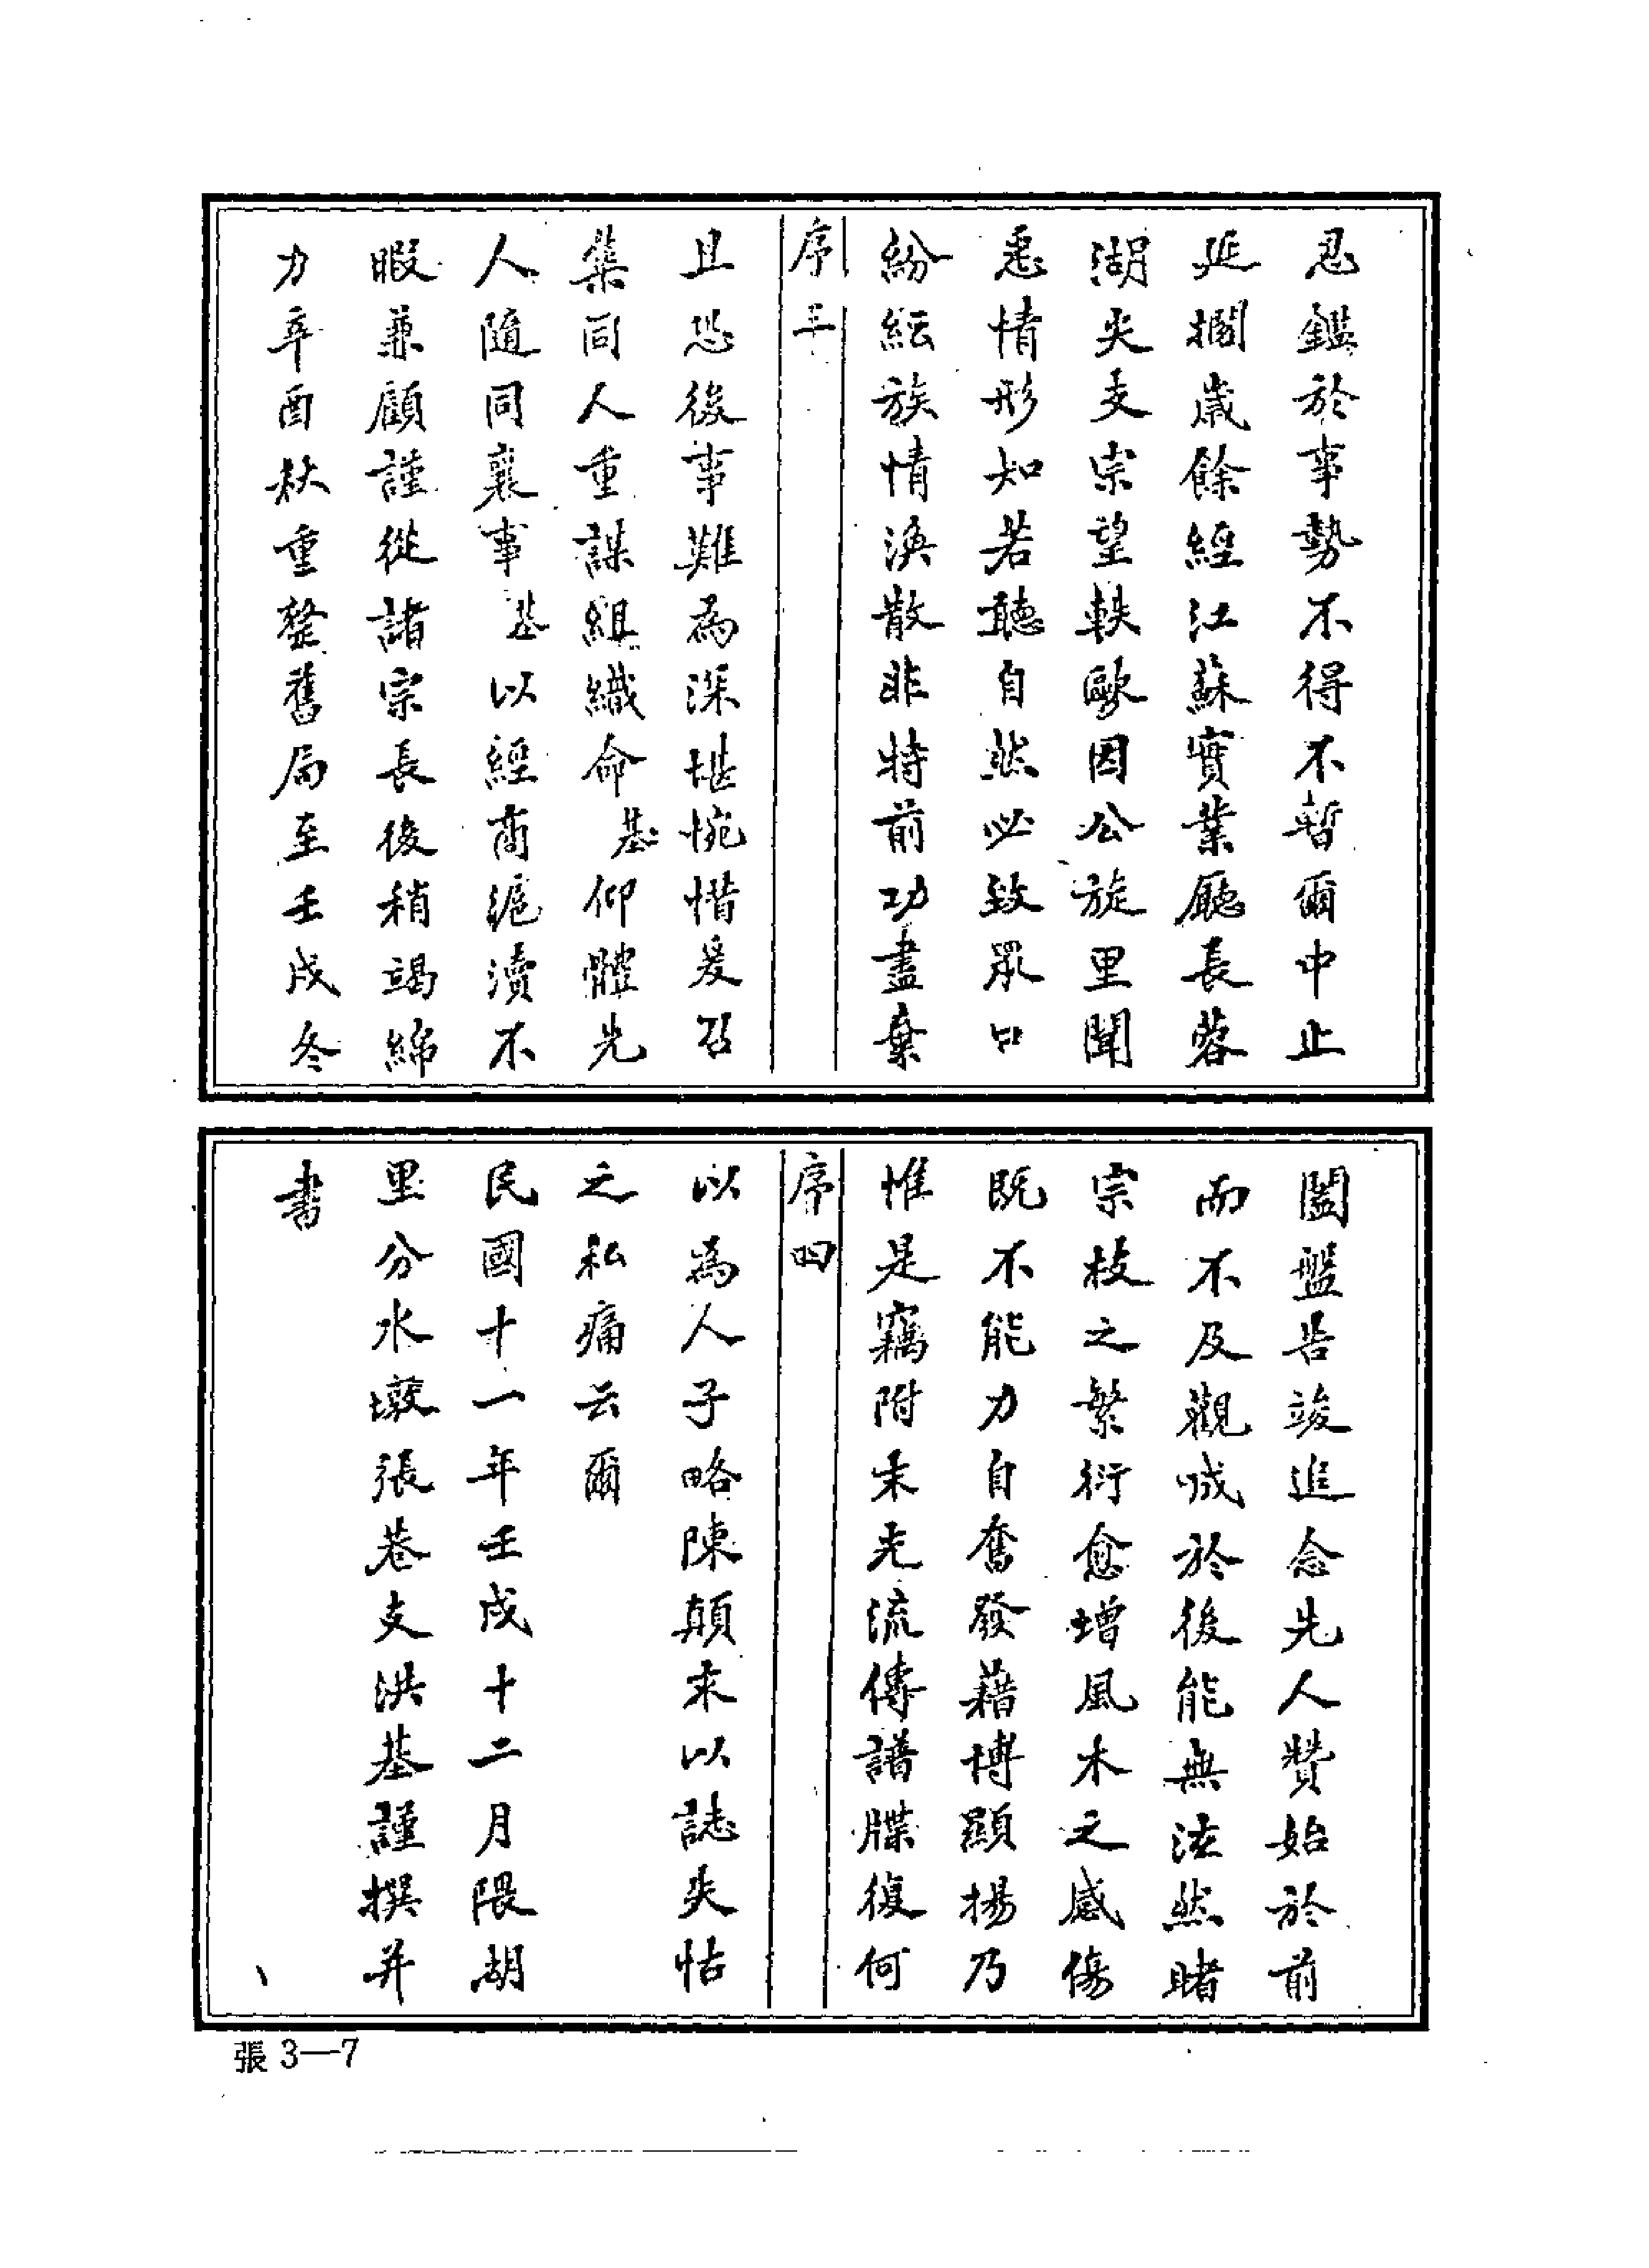 忍鑑於事勢不得不暫爾中止
延擱歲餘經江蘇實業廳長蓉
湖尖支宗望軼歐因公旋里聞
悉情形知若聽自然必致眾口
紛紜族情渙散非特前功盡棄
序三
且恐後事難為深堪惋惜爰召
集同人重謀組織命基仰體先
人隨同襄事基以經商滬瀆不
暇兼顧謹從諸宗長後稍竭綿
力辛酉秋重整舊局至壬戌冬
闔盤告竣追念先人贊始於前
而不及觀成於後能無泫然睹
宗枝之繁衍愈增風木之感傷
既不能力自奮發藉博顯揚乃
惟是竊附末光流傳譜牒復何
序四
以為人子略陳顛末以誌失怙
之私痛云爾
民國十一年壬戌十二月隈胡
里分水墩張巷支洪基謹撰并
書
張3—7